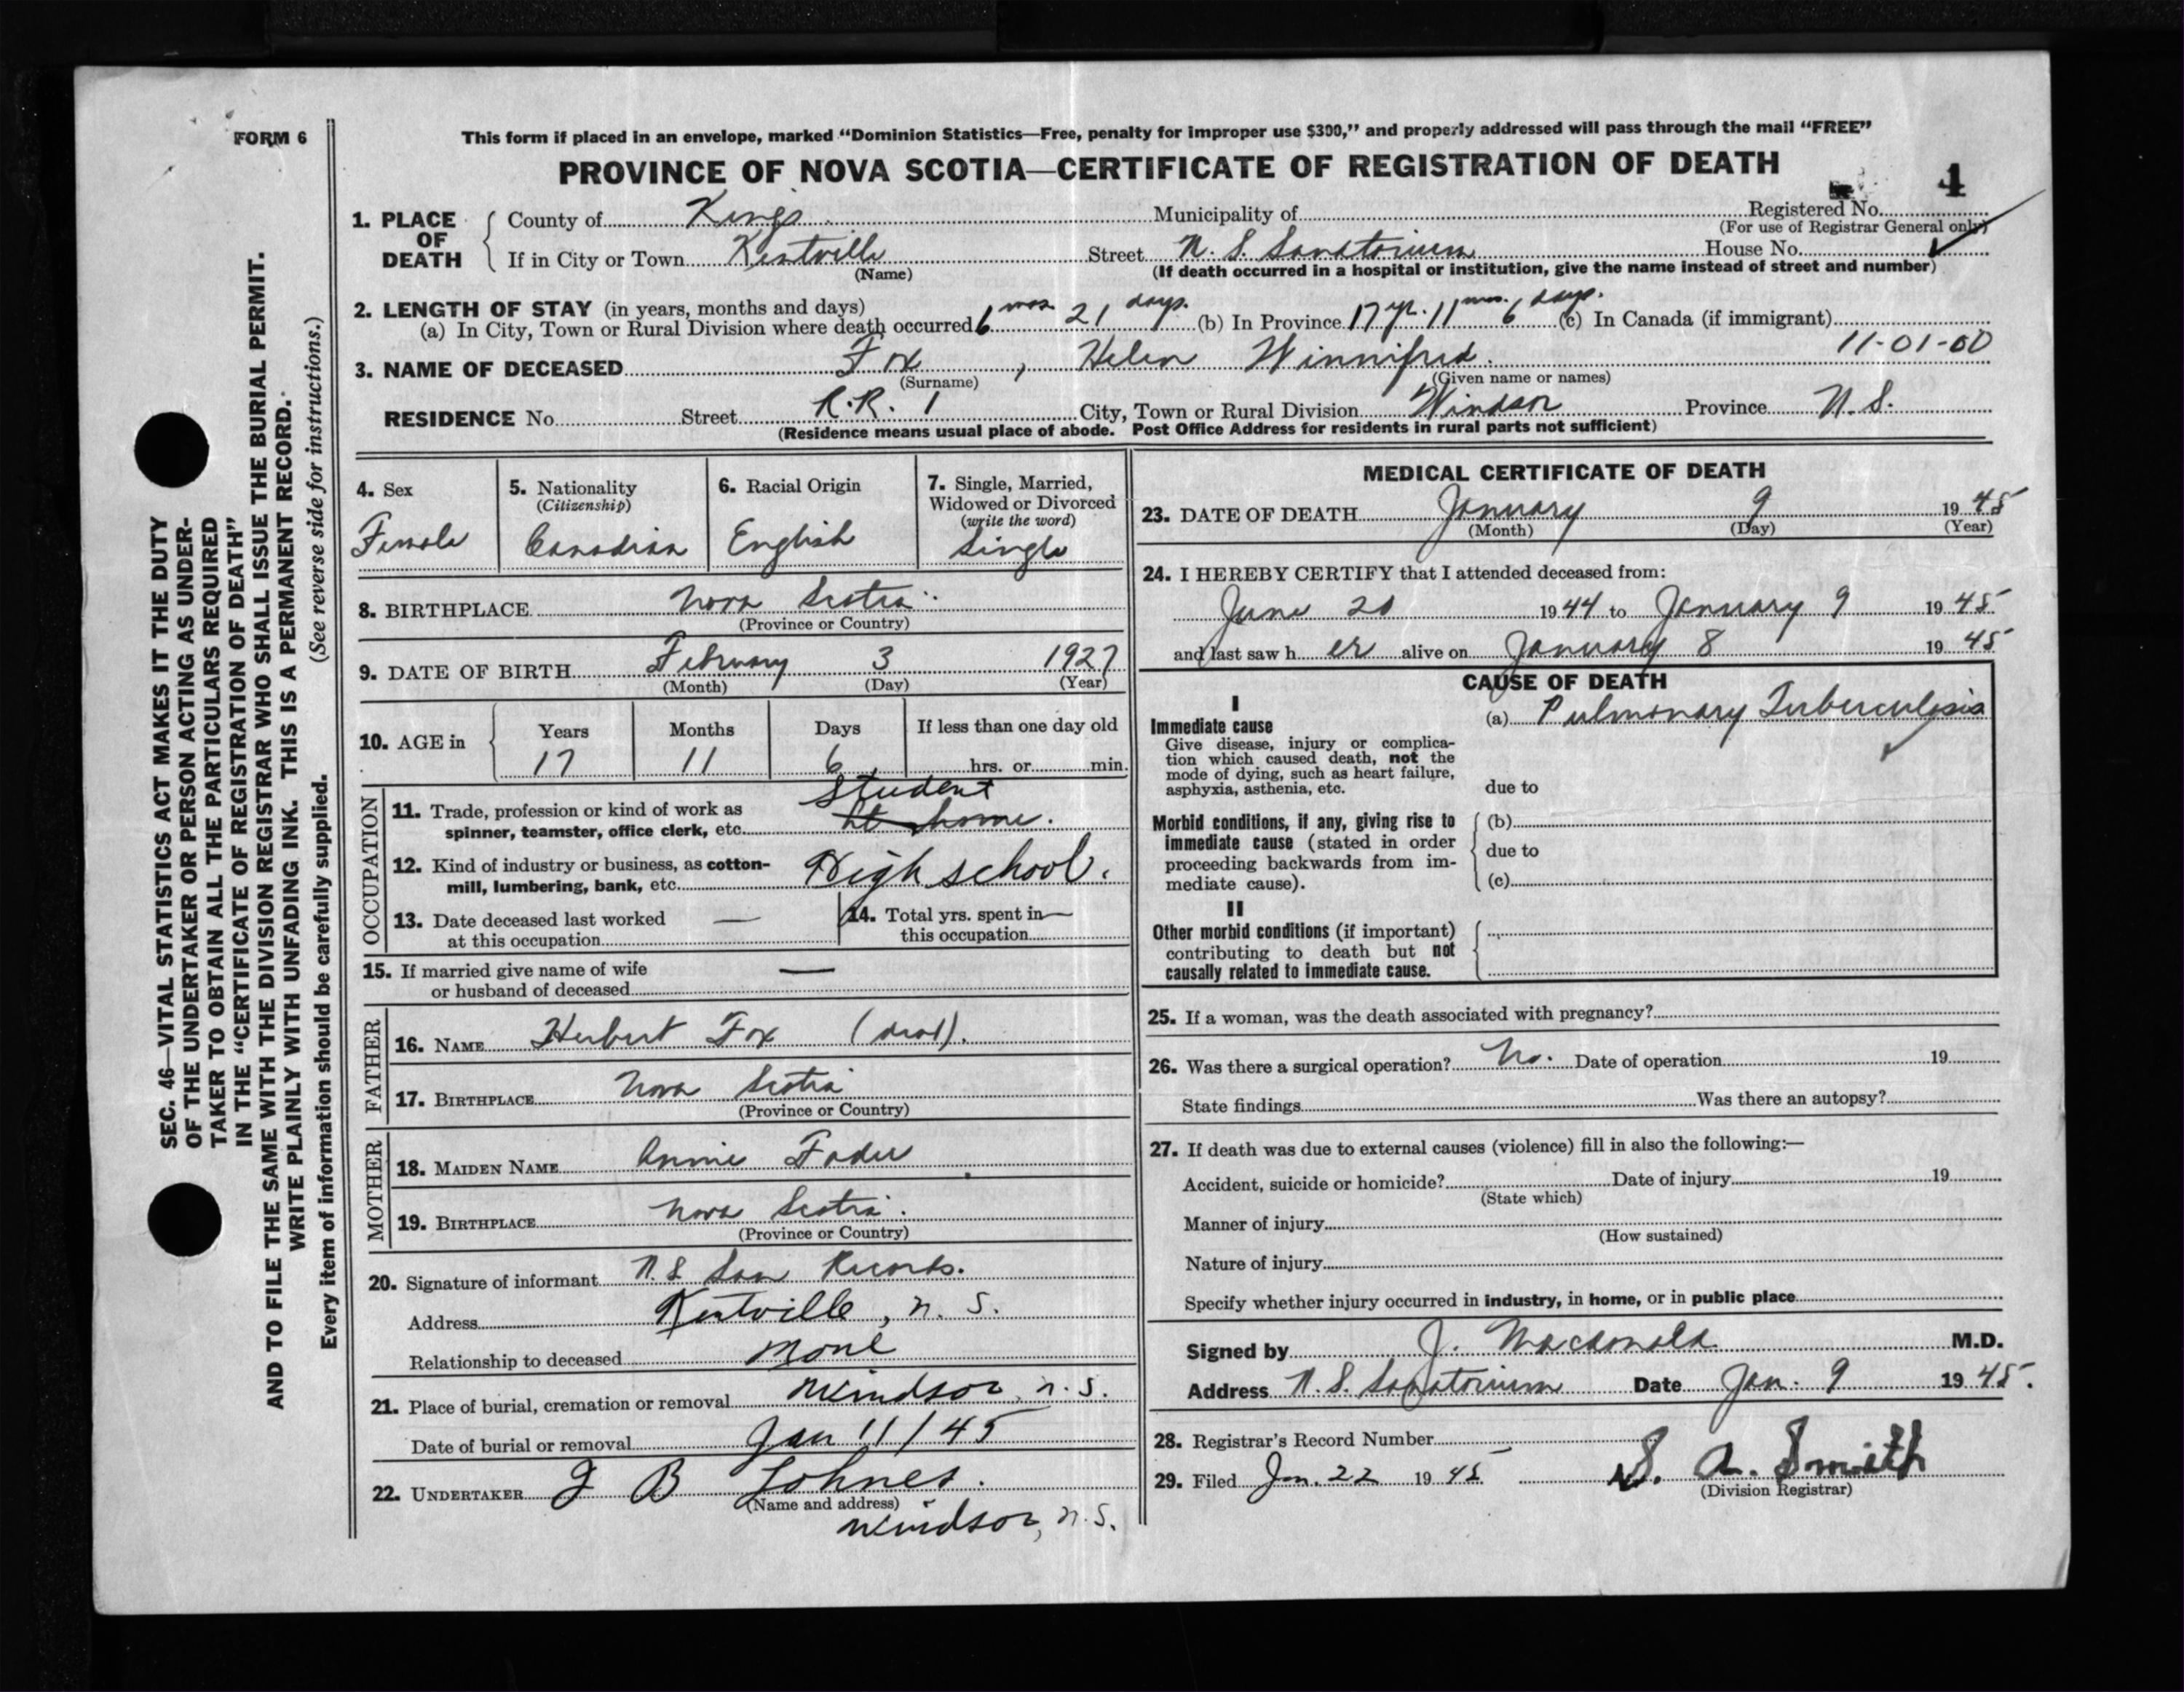 FORM 6
This form if placed in an envelope, marked “Dominion Statistics—Free, penalty for improper use $300,” and properly addressed will pass through the mail “FREE”
PROVINCE OF NOVA SCOTIA—CERTIFICATE OF REGISTRATION OF DEATH
4
1. PLACE OF DEATH
County of Kings Municipality of Registered No.
(For use of Registrar General only)
If in City or Town Kentville Street N. S. Sanatorium House No.
(Name) (If death occurred in a hospital or institution, give the name instead of street and number)
2. LENGTH OF STAY (in years, months and days)
(a) In City, Town or Rural Division where death occurred 6 mos 21 days. (b) In Province 17 yr. 11 mos. 6 days. (c) In Canada (if immigrant)
11-01-00
3. NAME OF DECEASED Fox, Helen Winnifred.
(Surname) (Given name or names)
RESIDENCE No. Street R.R. 1 City, Town or Rural Division Windsor Province N. S.
(Residence means usual place of abode. Post Office Address for residents in rural parts not sufficient)
4. Sex
Female
5. Nationality
(Citizenship)
Canadian
6. Racial Origin
English
7. Single, Married,
Widowed or Divorced
(write the word)
Single
8. BIRTHPLACE Nova Scotia
(Province or Country)
9. DATE OF BIRTH February 3 1927
(Month) (Day) (Year)
10. AGE in
Years Months Days If less than one day old
17 11 6 hrs. or min.
OCCUPATION
Student
11. Trade, profession or kind of work as
spinner, teamster, office clerk, etc. At home.
12. Kind of industry or business, as cotton-
mill, lumbering, bank, etc. High school.
13. Date deceased last worked
at this occupation —
14. Total yrs. spent in
this occupation —
15. If married give name of wife
or husband of deceased —
FATHER
16. NAME Herbert Fox (dead).
17. BIRTHPLACE Nova Scotia
(Province or Country)
MOTHER
18. MAIDEN NAME Annie Fader
19. BIRTHPLACE Nova Scotia.
(Province or Country)
20. Signature of informant N. S San Records.
Address Kentville, N. S.
Relationship to deceased none
21. Place of burial, cremation or removal Windsor, N. S.
Date of burial or removal Jan 11/45
22. UNDERTAKER J B Lohnes.
(Name and address)
Windsor, N. S.
MEDICAL CERTIFICATE OF DEATH
23. DATE OF DEATH January 9 1945
(Month) (Day) (Year)
24. I HEREBY CERTIFY that I attended deceased from:
June 20 1944 to January 9 1945
and last saw h er alive on January 8 1945
CAUSE OF DEATH
I
Immediate cause (a) Pulmonary Tuberculosis
Give disease, injury or complica-
tion which caused death, not the
mode of dying, such as heart failure,
asphyxia, asthenia, etc. due to
Morbid conditions, if any, giving rise to (b)
immediate cause (stated in order due to
proceeding backwards from im-
mediate cause). (c)
II
Other morbid conditions (if important)
contributing to death but not
causally related to immediate cause.
25. If a woman, was the death associated with pregnancy?
26. Was there a surgical operation? No. Date of operation 19
State findings Was there an autopsy?
27. If death was due to external causes (violence) fill in also the following:—
Accident, suicide or homicide? Date of injury 19
(State which)
Manner of injury
(How sustained)
Nature of injury
Specify whether injury occurred in industry, in home, or in public place
Signed by J. Macdonald M.D.
Address N. S. Sanatorium Date Jan. 9 1945.
28. Registrar's Record Number
29. Filed Jan. 22 1945 S. A. Smith
(Division Registrar)
SEC. 46—VITAL STATISTICS ACT MAKES IT THE DUTY
OF THE UNDERTAKER OR PERSON ACTING AS UNDER-
TAKER TO OBTAIN ALL THE PARTICULARS REQUIRED
IN THE “CERTIFICATE OF REGISTRATION OF DEATH”
AND TO FILE THE SAME WITH THE DIVISION REGISTRAR WHO SHALL ISSUE THE BURIAL PERMIT.
WRITE PLAINLY WITH UNFADING INK. THIS IS A PERMANENT RECORD.
Every item of information should be carefully supplied. (See reverse side for instructions.)